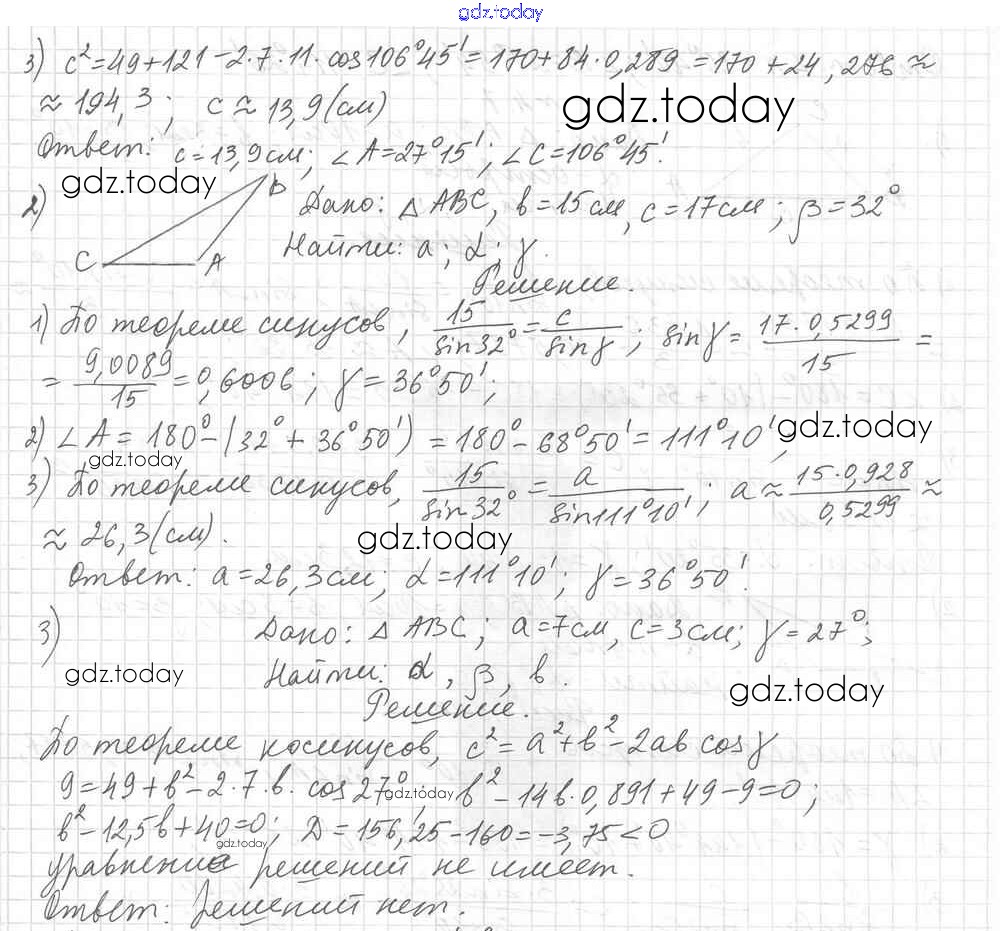 gdz.today
3) c²=49+121-2·7·11·cos106°45'=170+84·0,289=170+24,276≈
≈194,3; c≈13,9(см)
gdz.today
Ответ: c=13,9см; ∠A=27°15'; ∠C=106°45'.
gdz.today
2) B C A Дано: △ABC, b=15см, c=17см; β=32°
Найти: a; α; γ.
Решение.
1) По теореме синусов, 15/sin32°=c/sinγ; sinγ=17·0,5299/15=
=9,0089/15=0,6006; γ=36°50';
2) ∠A=180°-(32°+36°50')=180°-68°50'=111°10',
gdz.today
gdz.today
3) По теореме синусов, 15/sin32°=a/sin111°10'; a≈15·0,928/0,5299≈
≈26,3(см).
gdz.today
Ответ: a=26,3см; α=111°10'; γ=36°50'.
3) Дано: △ABC; a=7см, c=3см; γ=27°;
gdz.today
Найти: α, β, b.
gdz.today
Решение.
По теореме косинусов, c²=a²+b²-2ab cosγ
9=49+b²-2·7·b·cos27°, b²-14b·0,891+49-9=0;
gdz.today
b²-12,5b+40=0; D=156,25-160=-3,75<0
gdz.today
уравнение решений не имеет.
Ответ: решений нет.